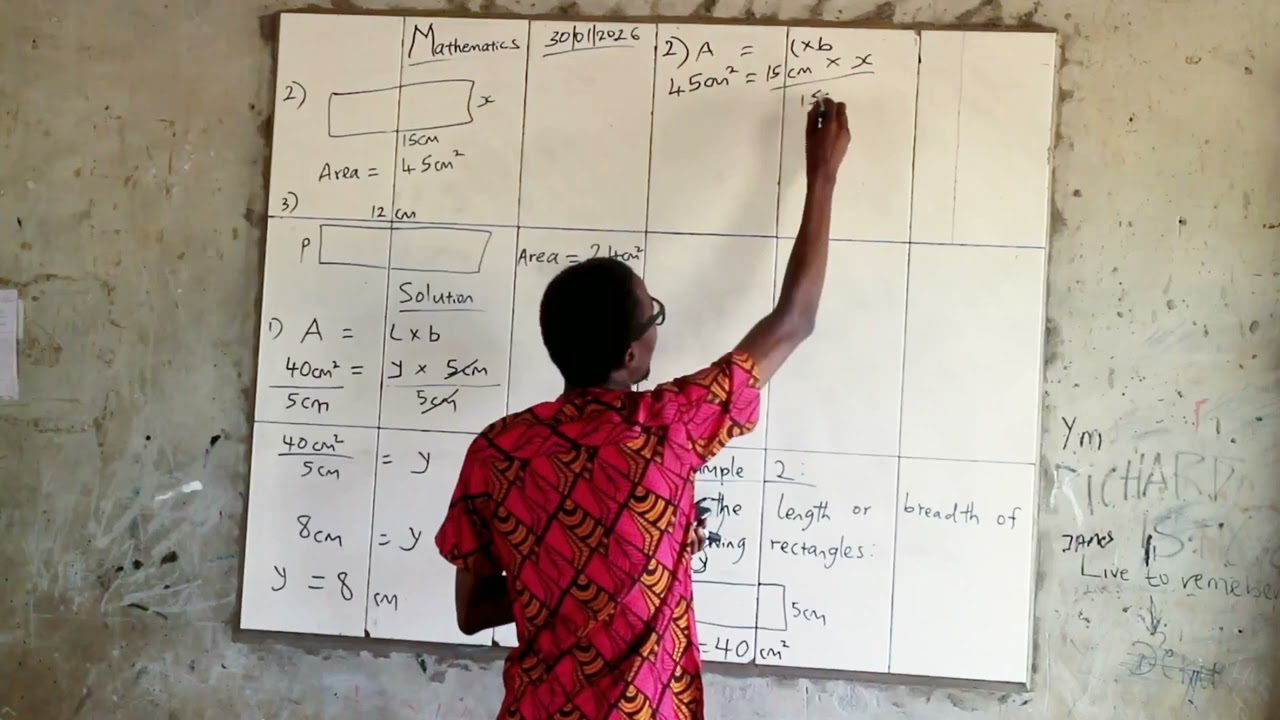 Mathematics 30/01/2026
2)
x
15cm
Area = 45cm²
3)
12 cm
p
Area = 24cm²
Solution
1) A = L×b
40cm² = y × 5cm
5cm 5cm
40cm² = y
5cm
8cm = y
y = 8 cm
2) A = L×b
45cm² = 15cm × x
15
2:
the length or breadth of
rectangles:
5cm
=40 cm²
Ym
RICHARD
JAMES
Live to